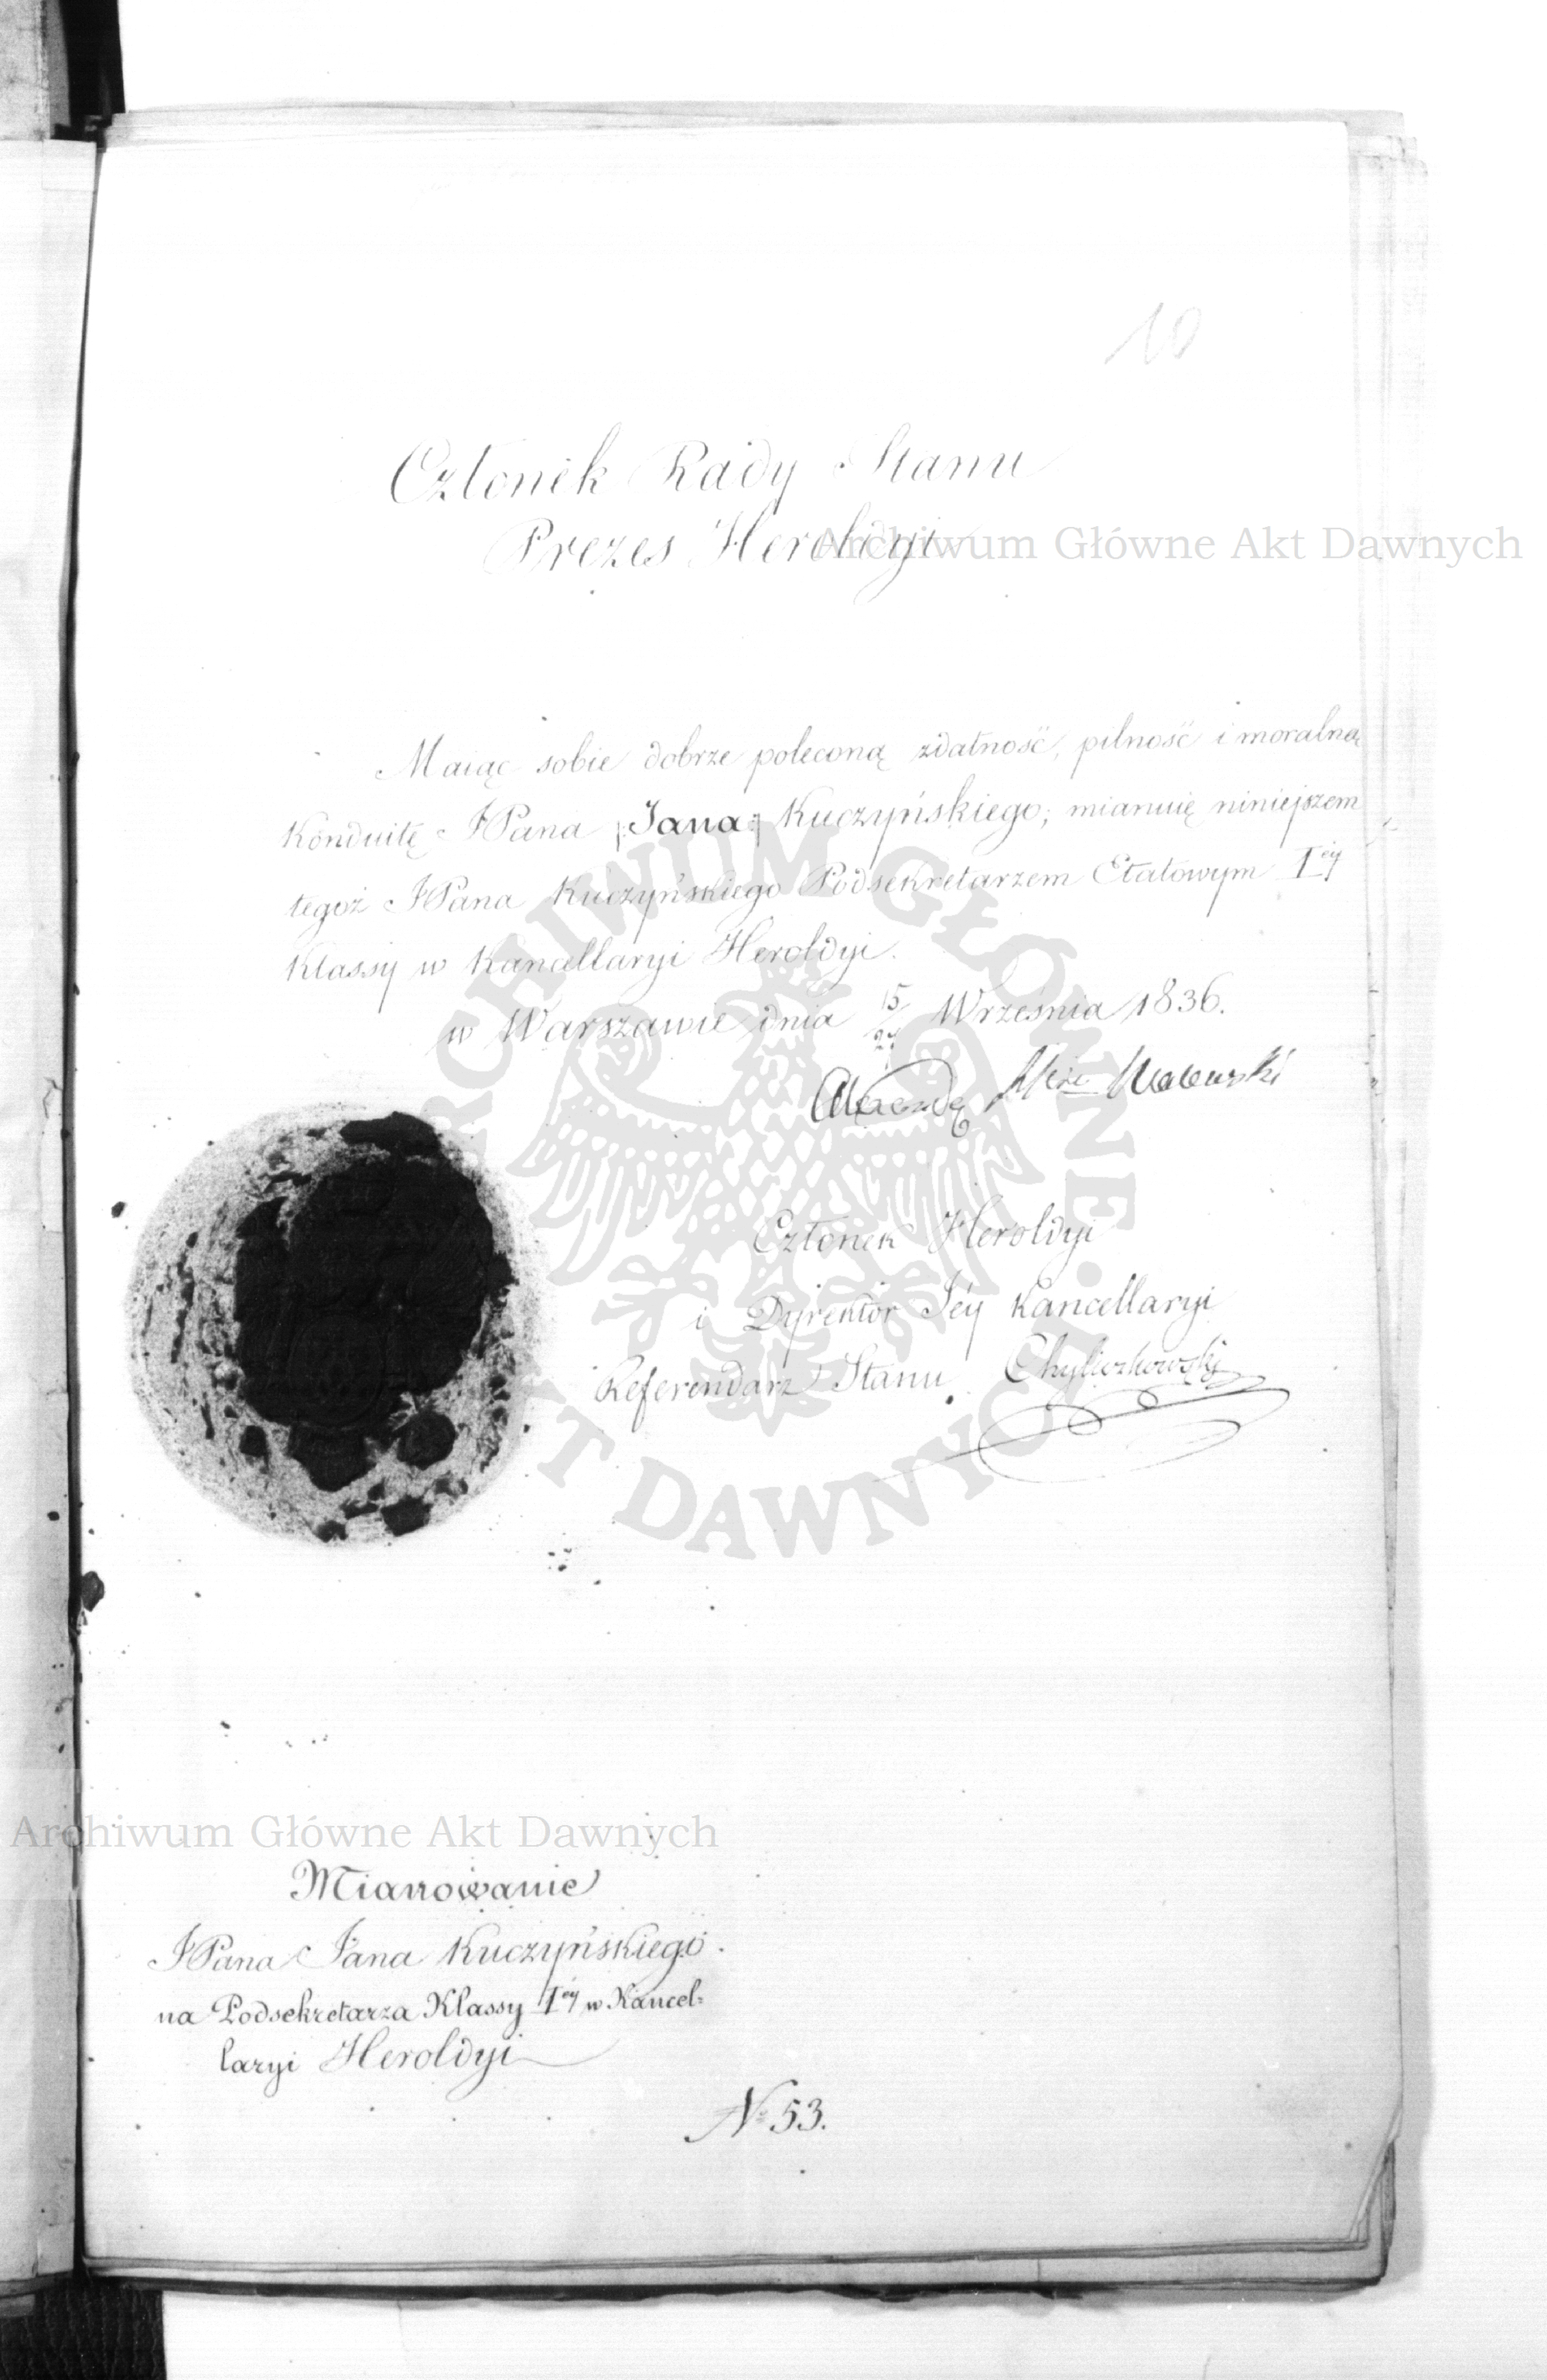 10
Członek Rady Stanu
Prezes Heroldyi
Archiwum Główne Akt Dawnych
Maiąc sobie dobrze poleconą zdatność, pilność i moralną
Konduitę JPana |:Jana:| Kuczyńskiego; mianuię niniejszem
tegoż JPana Kuczyńskiego Podsekretarzem Etatowym Iéy
Klassy w Kancellaryi Heroldyi.
w Warszawie dnia 15/27 Września 1836.
Walewski
ARCHIWUM GŁÓWNE AKT DAWNYCH
Członek Heroldyi
i Dyrektor Jéy Kancellaryi
Referendarz Stanu Chyliczkowski
Archiwum Główne Akt Dawnych
Mianowanie
JPana Jana Kuczyńskiego.
na Podsekretarza Klassy Iéy w Kancel=
laryi Heroldyi
No 53.